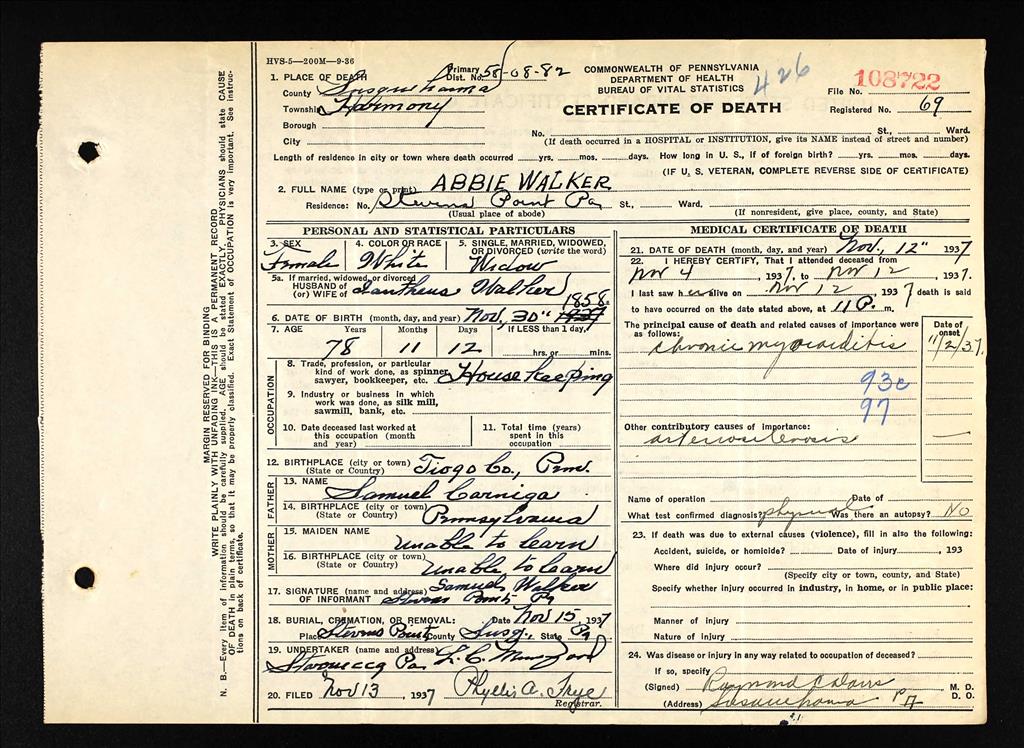 HVS-5—200M—9-36
Primary Dist. No. 58-08-82
COMMONWEALTH OF PENNSYLVANIA
DEPARTMENT OF HEALTH
BUREAU OF VITAL STATISTICS
426
108722
File No.
CERTIFICATE OF DEATH
Registered No. 69
1. PLACE OF DEATH
County Susquehanna
Township Harmony
Borough
City
No. St., Ward.
(If death occurred in a HOSPITAL or INSTITUTION, give its NAME instead of street and number)
Length of residence in city or town where death occurred yrs. mos. days. How long in U. S., if of foreign birth? yrs. mos. days.
(IF U. S. VETERAN, COMPLETE REVERSE SIDE OF CERTIFICATE)
2. FULL NAME (type or print) ABBIE WALKER
Residence: No. Stevens Point Pa St., Ward.
(Usual place of abode) (If nonresident, give place, county, and State)
PERSONAL AND STATISTICAL PARTICULARS
3. SEX Female
4. COLOR OR RACE White
5. SINGLE, MARRIED, WIDOWED, OR DIVORCED (write the word) Widow
5a. If married, widowed, or divorced
HUSBAND OF
(or) WIFE OF Iantheus Walker
1858
6. DATE OF BIRTH (month, day, and year) Nov, 30"
7. AGE Years Months Days If LESS than 1 day,
78 11 12 hrs. or mins.
OCCUPATION
8. Trade, profession, or particular
kind of work done, as spinner,
sawyer, bookkeeper, etc. House keeping
9. Industry or business in which
work was done, as silk mill,
sawmill, bank, etc.
10. Date deceased last worked at
this occupation (month
and year)
11. Total time (years)
spent in this
occupation
12. BIRTHPLACE (city or town) Tioga Co., Penn.
(State or Country)
FATHER
13. NAME
Samuel Carniga
14. BIRTHPLACE (city or town)
(State or Country) Pennsylvania
MOTHER
15. MAIDEN NAME
Unable to learn
16. BIRTHPLACE (city or town)
(State or Country) Unable to learn
17. SIGNATURE (name and address) Samuel Walker
OF INFORMANT Stevens Point, Pa
18. BURIAL, CREMATION, OR REMOVAL: Date Nov 15 1937
Place Stevens Point County Susq. State Pa
19. UNDERTAKER (name and address)
Starrucca Pa
20. FILED Nov 13, 1937 Phyllis A. Frye
Registrar.
MEDICAL CERTIFICATE OF DEATH
21. DATE OF DEATH (month, day, and year) Nov, 12" 1937
22. I HEREBY CERTIFY, That I attended deceased from
Nov 4, 1937, to Nov 12, 1937.
I last saw her alive on Nov 12 1937 death is said
to have occurred on the date stated above, at 11 P. m.
The principal cause of death and related causes of importance were
as follows:
Date of
onset
chronic myocarditis 11/2/37.
93c
97
Other contributory causes of importance:
arteriosclerosis —
Name of operation Date of
What test confirmed diagnosis? physical Was there an autopsy? No
23. If death was due to external causes (violence), fill in also the following:
Accident, suicide, or homicide? Date of injury, 193
Where did injury occur?
(Specify city or town, county, and State)
Specify whether injury occurred in industry, in home, or in public place:
Manner of injury
Nature of injury
24. Was disease or injury in any way related to occupation of deceased?
If so, specify
(Signed) Raymond C Davis M. D.
D. O.
(Address) Susquehanna Pa
MARGIN RESERVED FOR BINDING
WRITE PLAINLY WITH UNFADING INK—THIS IS A PERMANENT RECORD
N. B.—Every item of information should be carefully supplied. AGE should be stated EXACTLY. PHYSICIANS should state CAUSE
OF DEATH in plain terms, so that it may be properly classified. Exact Statement of OCCUPATION is very important. See instruc-
tions on back of certificate.